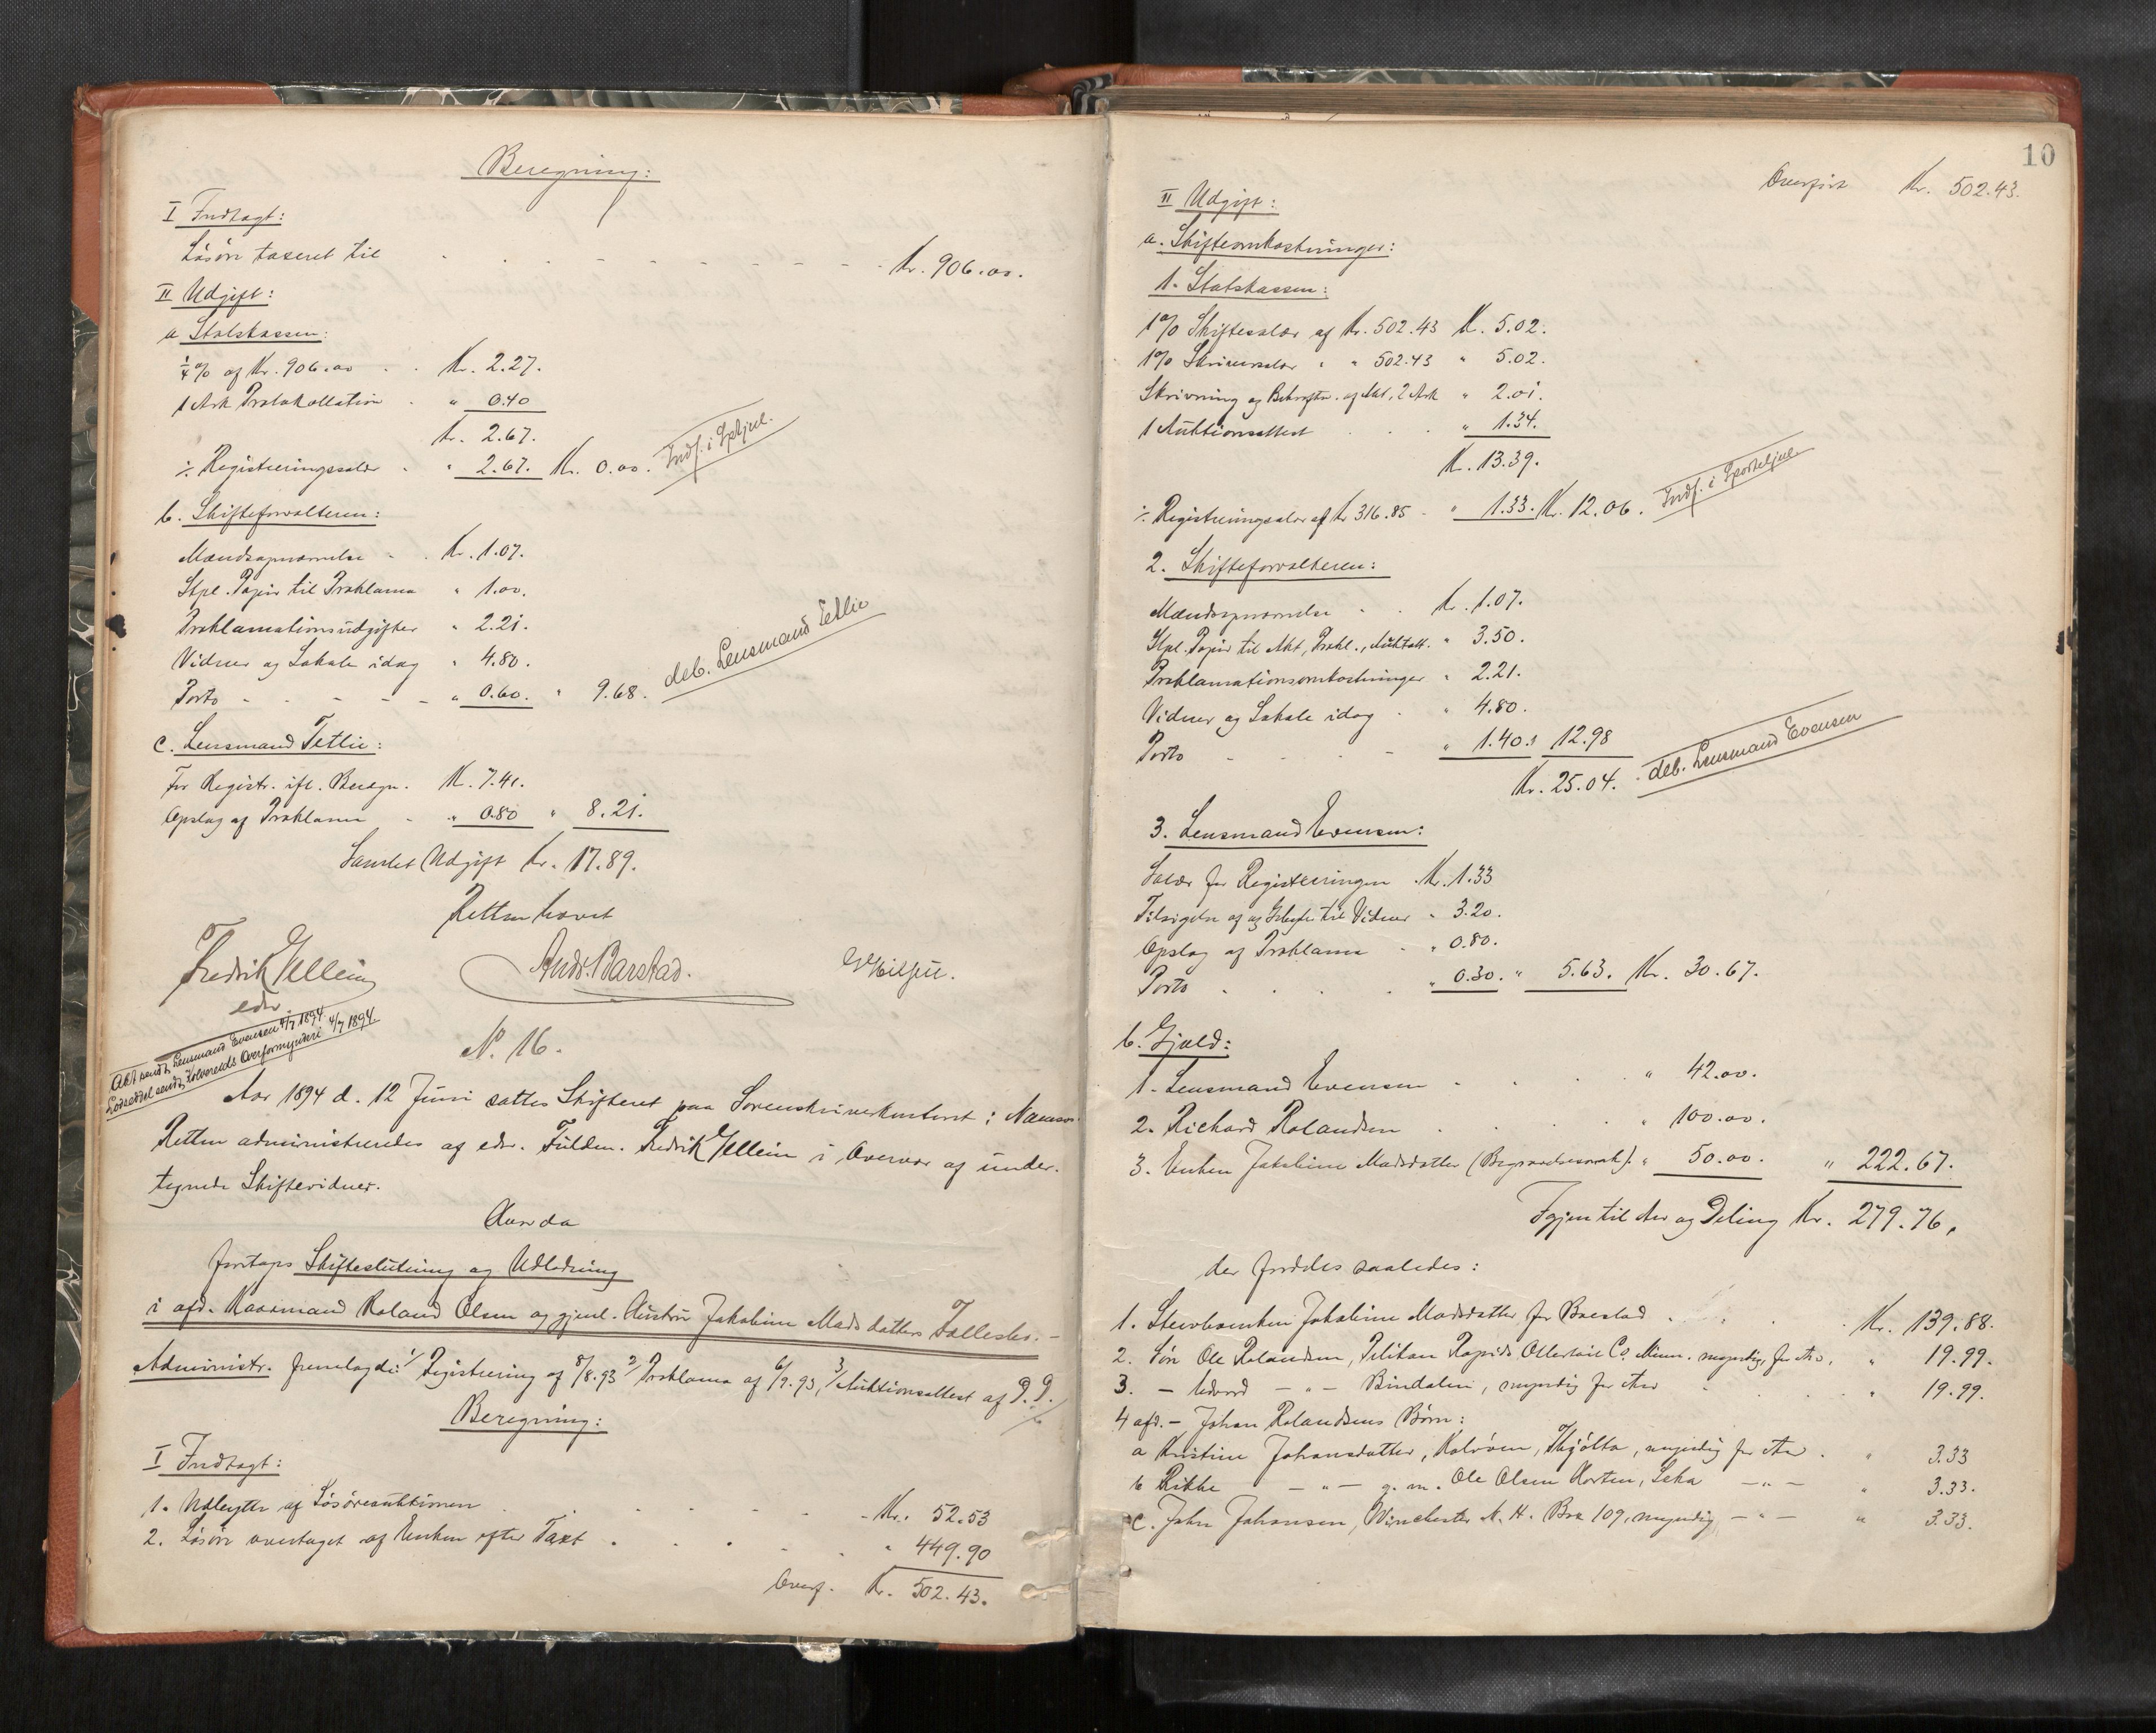 Beregning:
I Indtægt:
Løsøre taxeret til Kr. 906.00.
II Udgift:
a Statskassen:
1/4 % af Kr. 906.00 Kr. 2.27.
1 Ark Protokollation " 0.40
Kr. 2.67.
÷ Registreringssalær " 2.67. Kr. 0.00. Indf. i Sptjul.
b. Skifteforvalteren:
Mændsopnævnelse Kr. 1.07.
Stpl. Papir til Proklama " 1.00.
Proklamationsudgifter " 2.21.
Vidner og Lokale idag " 4.80.
Porto " 0.60. " 9.68. deb. Lensmand Tetlie
c. Lensmand Tetlie:
For Registr. ifl. Beregn. Kr. 7.41.
Opslag af Proklama " 0.80 " 8.21.
Samlet Udgift Kr. 17.89.
Retten hævet
Fredrik Gellein
edsv.
Ands. Barstad.
Akt sendt Lensmand Evensen 4/7 1894.
Lodseddel sendt Kolvereids Overformynderi 4/7 1894.
N. 16.
Aar 1894 d. 12 Juni sattes Skifteret paa Sorenskriverkontoret i Namsos.
Retten administreredes af edsv. Fuldm. Fredrik Gellein i Overvær af under-
tegnede Skiftevidner.
Hvorda
foretoges Skifteslutning og Udlodning
i afd. Kaarmand Roland Olsen og gjenl. Hustru Jakobine Mads datters Fællesbo. –
Administr. fremlagde: 1/ Registrering af 8/8.93 2/ Proklama af 6/9.93, 3/ Auktionsattest af D. D.
Beregning:
I Indtægt:
1. Udbytte af Løsøreauktionen Kr. 52.53
2. Løsøre overtaget af Enken efter Taxt " 449.90
Overf. Kr. 502.43.
10
Overført Kr. 502.43.
II Udgift:
a. Skifteomkostninger:
1. Statskassen:
1 % Skiftesalær af Kr. 502.43 Kr. 5.02.
1 % Skriversalær " " 502.43 " 5.02.
Skrivning og Bekræftn. af Akt, 2 Ark " 2.01.
1 Auktionsattest " 1.34.
Kr. 13.39.
÷ Registreringssalær af Kr 316.85 " 1.33. Kr. 12.06. Indf. i Sporteljul.
2. Skifteforvalteren:
Mændsopnævnelse Kr. 1.07.
Stpl. Papir til Akt, Prokl., Auktatt. " 3.50.
Proklamationsomkostninger " 2.21.
Vidner og Lokale idag " 4.80.
Porto " 1.40. " 12.98
Kr. 25.04. deb. Lensmand Evensen
3. Lensmand Evensen:
Salær for Registreringen Kr. 1.33
Tilsigelse af og Gebyr til Vidner " 3.20.
Opslag af Proklama " 0.80.
Porto " 0.30. " 5.63. Kr. 30.67.
b. Gjæld:
1. Lensmand Evensen " 42.00.
2. Richard Rolandsen " 100.00.
3. Enken Jakobine Madsdatter (Begravelsesomk). " 50.00. " 222.67.
Igjen til Arv og Deling Kr. 279.76,
der fordeles saaledes:
1. Stervboenken Jakobine Madsdatter for Boeslod Kr. 139.88.
2. Søn Ole Rolandsen, Pelikan Rapids Ottertail Co. Minn. myndig, for Arv, " 19.99.
3. – Edvard – " – Bindalen, myndig for Arv " 19.99.
4 afd. – Johan Rolandsens Børn:
a Kristine Johansdatter, Kalvøen, Thjøtta, myndig for Arv " 3.33
b Rikke – " – g. m. Ole Olsen Horten, Leka – " – " 3.33.
c. John Johansen, Winchester N. H. Box 109, myndig – " – " 3.33.